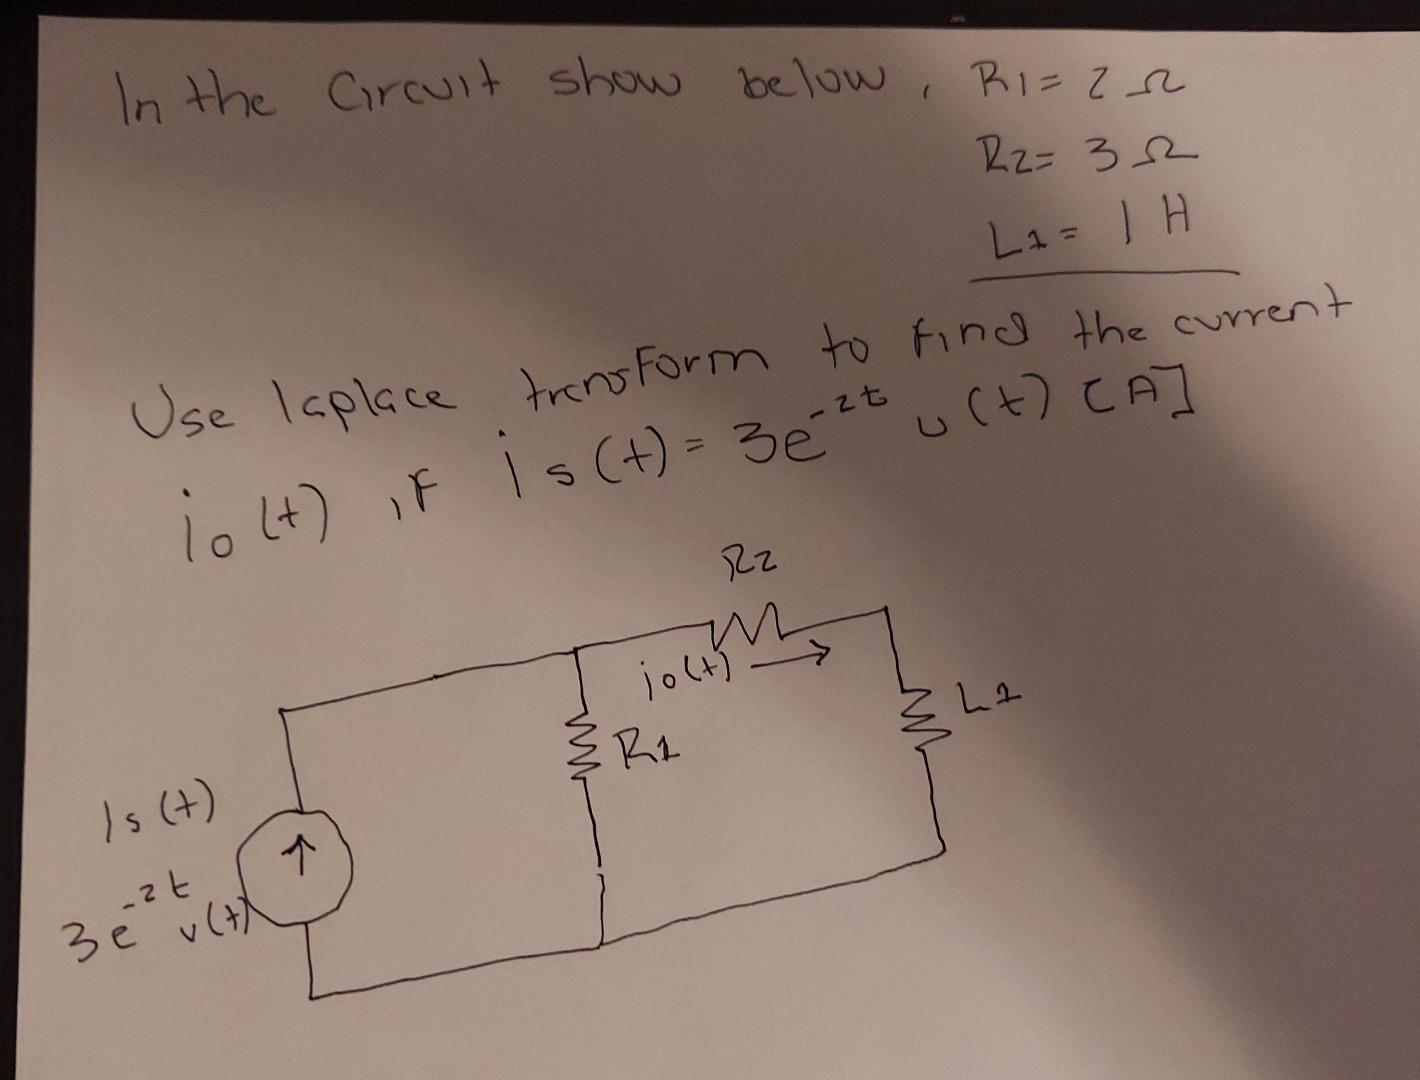 In the Circuit show below, R1 = 2 Ω
R2 = 3 Ω
L1 = 1 H
Use laplace transform to find the current
io(t), if is(t) = 3e^-2t u(t) [A]
R2
io(t) →
L1
R1
Is(t)
3e^-2t u(t)